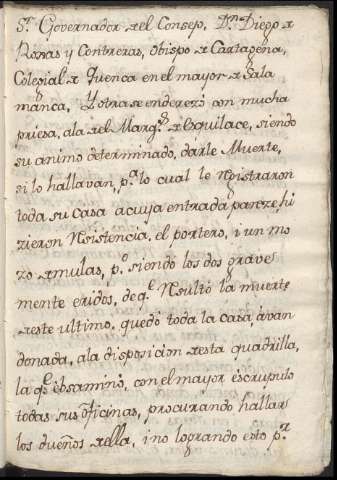 Sr. Governador del Consejo, Dn. Diego de
Roxas y Contreras, Obispo de Cartagena,
Colegial de Quenca en el mayor de Sala
manca, Y otra se enderezó con mucha
priesa, a la del Marqs. de Esquilace, siendo
su animo determinado, darle Muerte,
si lo hallavan, pa. lo cual le Registraron
toda su Casa a cuya entrada hi
zieron Resistencia, el portero, i un mo
zo de mulas, po. siendo los dos grave
mente eridos, de qe. Resultó la muerte
deste ultimo, quedó toda la Casa avan
donada, a la disposicion desta quadrilla,
la qe. ebsaminó, con el mayor escrupulo
todas sus oficinas, procurando hallar
los dueños della, i no logrando esto pr.